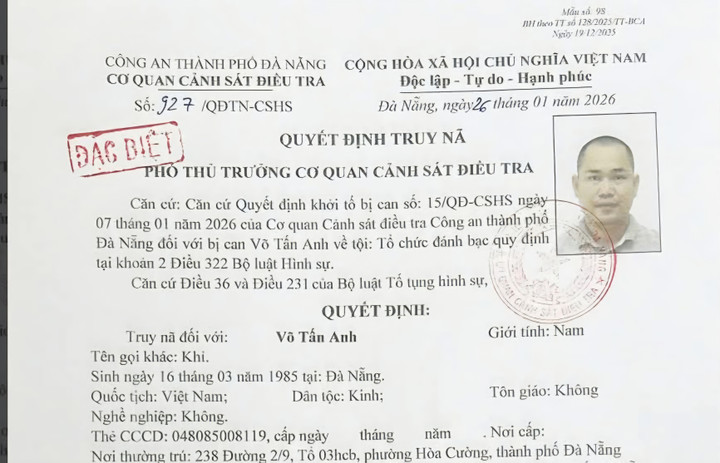 Mẫu số: 98
BH theo TT số 128/2025/TT-BCA
Ngày 19/12/2025
CÔNG AN THÀNH PHỐ ĐÀ NẴNG
CƠ QUAN CẢNH SÁT ĐIỀU TRA
Số: 927 /QĐTN-CSHS
CỘNG HÒA XÃ HỘI CHỦ NGHĨA VIỆT NAM
Độc lập - Tự do - Hạnh phúc
Đà Nẵng, ngày 26 tháng 01 năm 2026
ĐẶC BIỆT
QUYẾT ĐỊNH TRUY NÃ
PHÓ THỦ TRƯỞNG CƠ QUAN CẢNH SÁT ĐIỀU TRA
Căn cứ: Căn cứ Quyết định khởi tố bị can số: 15/QĐ-CSHS ngày
07 tháng 01 năm 2026 của Cơ quan Cảnh sát điều tra Công an thành phố
Đà Nẵng đối với bị can Võ Tấn Anh về tội: Tổ chức đánh bạc quy định
tại khoản 2 Điều 322 Bộ luật Hình sự.
Căn cứ Điều 36 và Điều 231 của Bộ luật Tố tụng hình sự,
CƠ QUAN CẢNH SÁT ĐIỀU TRA
QUYẾT ĐỊNH:
Truy nã đối với: Võ Tấn Anh Giới tính: Nam
Tên gọi khác: Khỉ.
Sinh ngày 16 tháng 03 năm 1985 tại: Đà Nẵng.
Quốc tịch: Việt Nam; Dân tộc: Kinh; Tôn giáo: Không
Nghề nghiệp: Không.
Thẻ CCCD: 048085008119, cấp ngày tháng năm . Nơi cấp:
Nơi thường trú: 238 Đường 2/9, Tổ 03hcb, phường Hòa Cường, thành phố Đà Nẵng